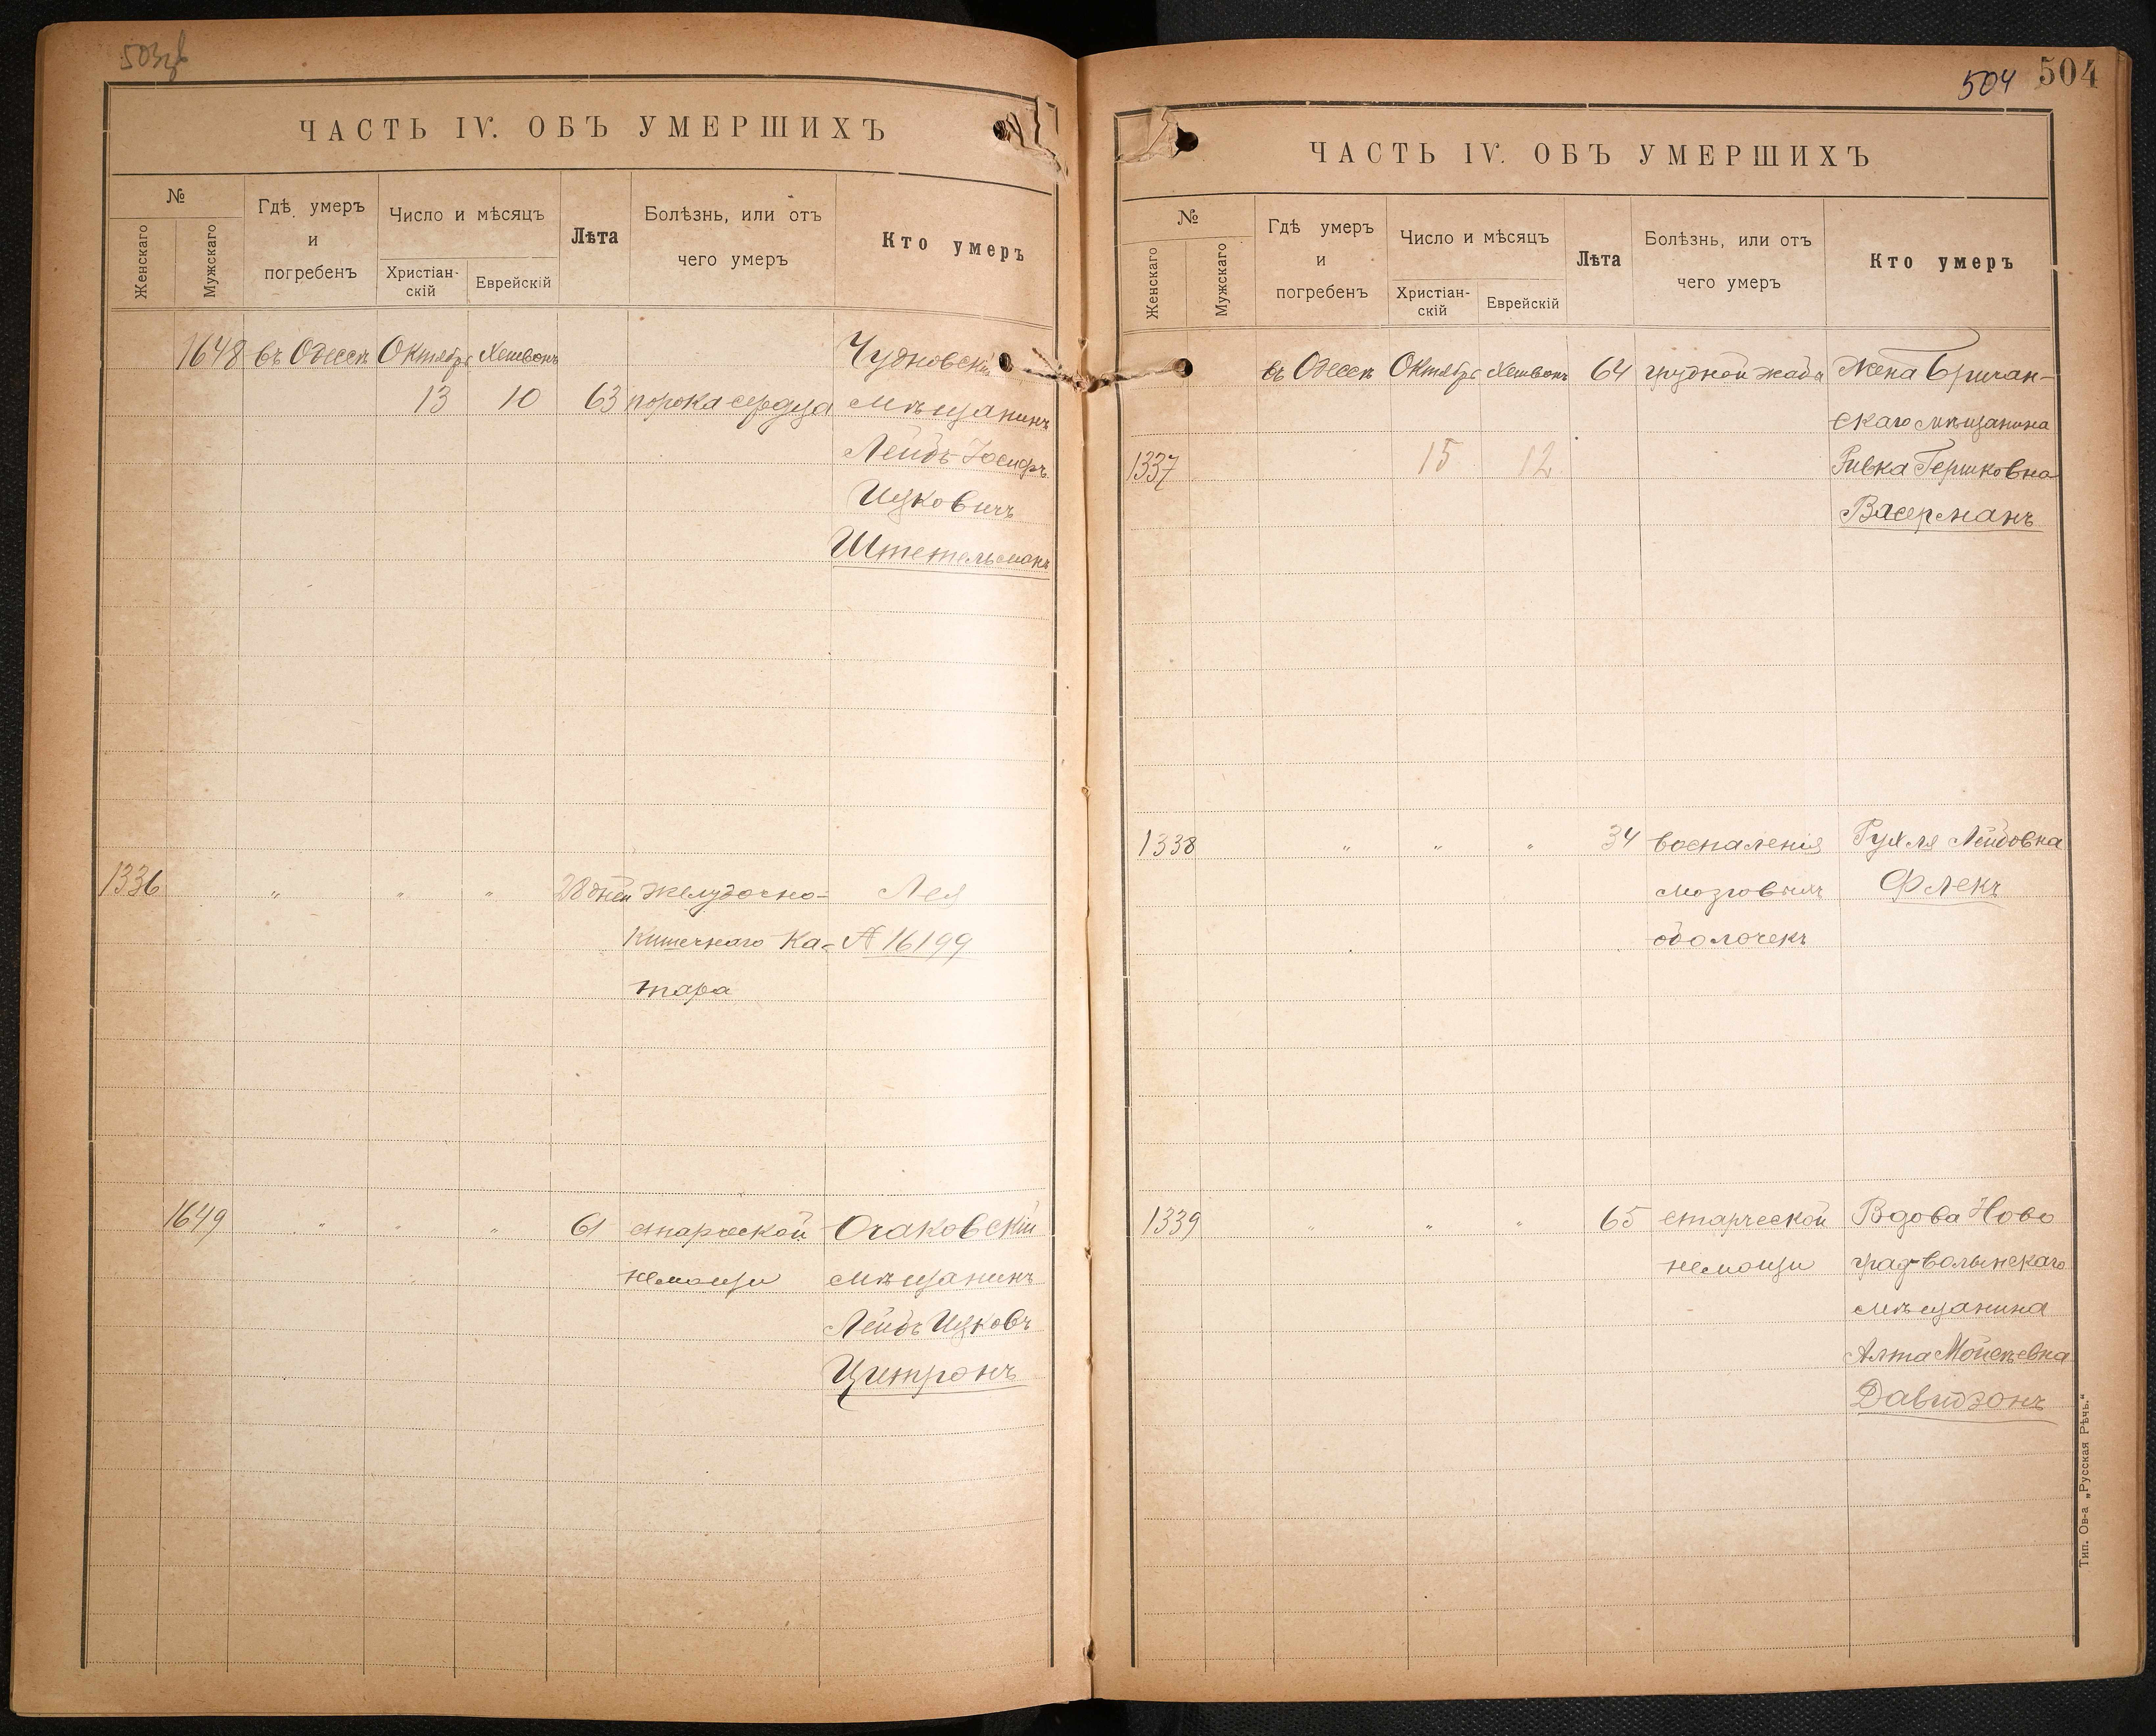 503об
ЧАСТЬ IV. ОБЪ УМЕРШИХЪ
№
Женскаго
Мужскаго
Гдѣ умеръ
и
погребенъ
Число и мѣсяцъ
Христіан-
скій
Еврейскій
Лѣта
Болѣзнь, или отъ
чего умеръ
Кто умеръ
1648 въ Одессѣ Октябрь Хешвонъ Чудновскій
13 10 63 порока сердца мѣщанинъ
Лейбъ-Іосифъ
Ицковичъ
Штетельманъ
1336 " " " 28 дней желудочно- Лея
кишечнаго ка- А 16199
тара
1649 " " " 61 старческой Очаковскій
немощи мѣщанинъ
Лейбъ Ицковъ
Цитронъ
504 504
ЧАСТЬ IV. ОБЪ УМЕРШИХЪ
№
Женскаго
Мужскаго
Гдѣ умеръ
и
погребенъ
Число и мѣсяцъ
Христіан-
скій
Еврейскій
Лѣта
Болѣзнь, или отъ
чего умеръ
Кто умеръ
въ Одессѣ Октябрь Хешвонъ 64 грудной жабы Жена Бричан-
скаго мѣщанина
1337 15 12 Ривка Гершковна
Васерманъ
1338 " " " 34 воспаленія Рухля Лейбовна
мозговыхъ Флекъ
оболочекъ
1339 " " " 65 старческой Вдова Ново
немощи градволынскаго
мѣщанина
Алта Мойсеевна
Давидзонъ
Тип. Ов-а „Русская Рѣчь."